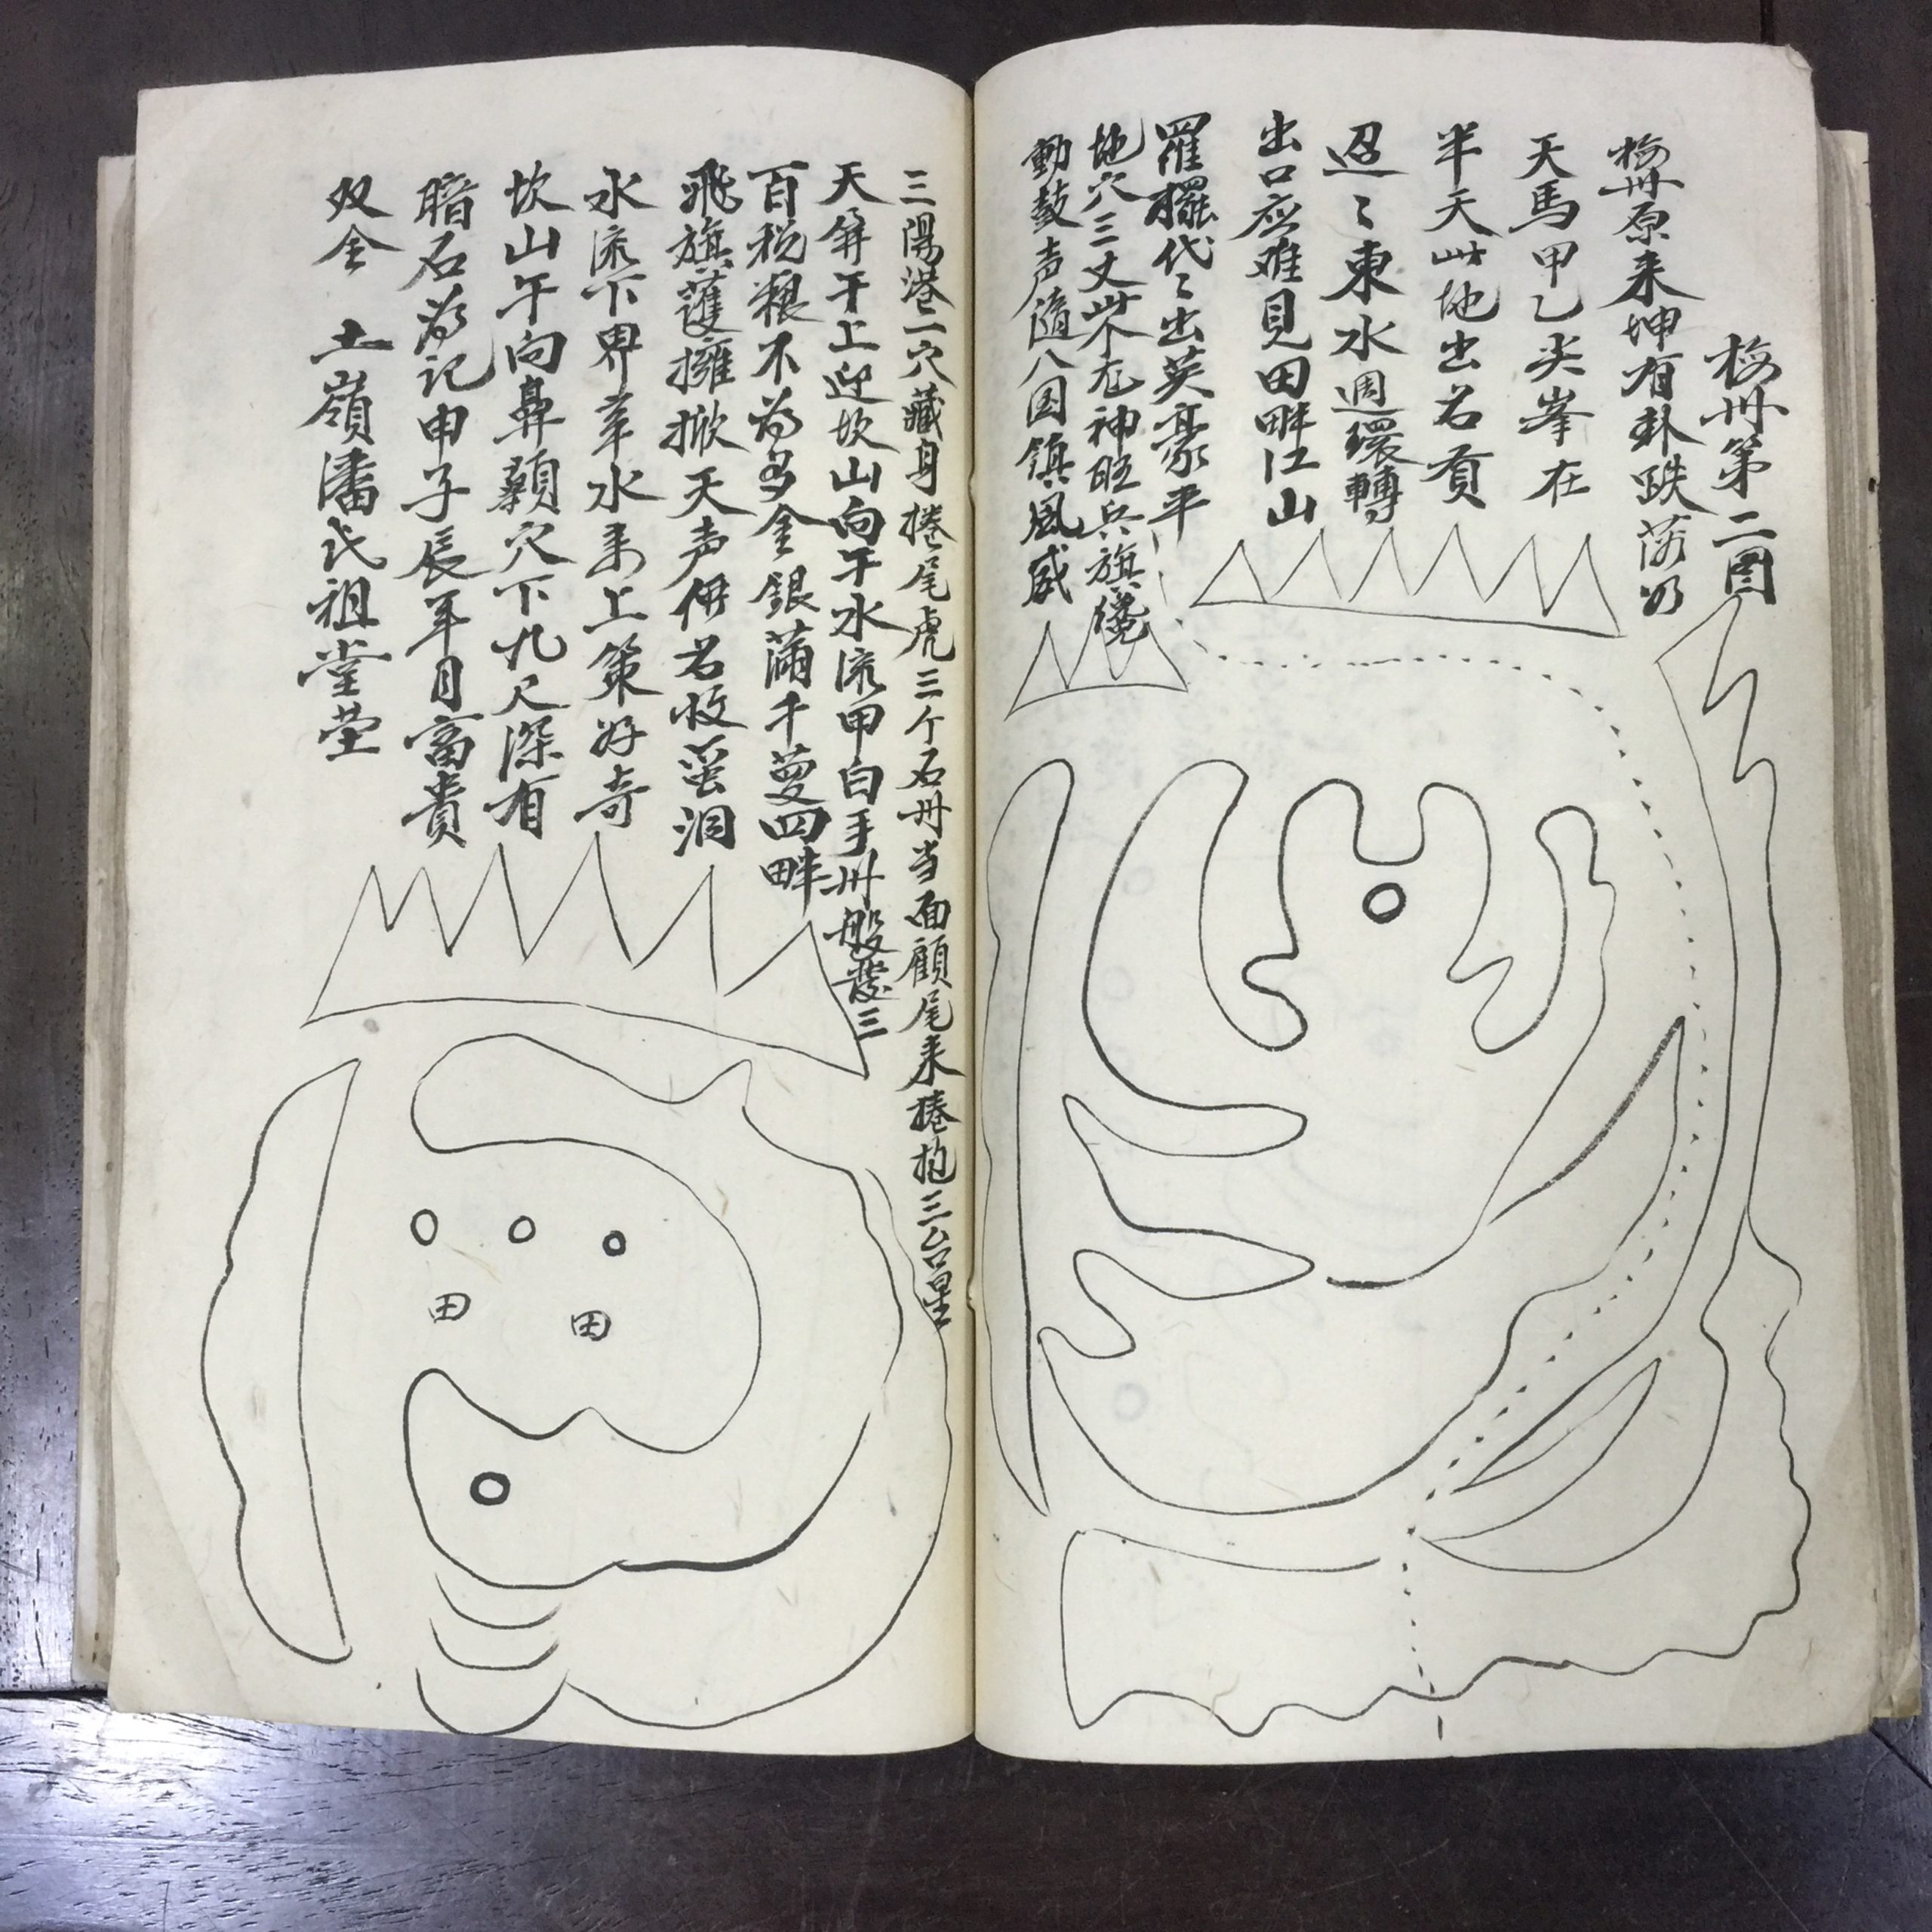 梅州第二图
梅州原来坤有卦跌落如
天馬甲乙尖峯在
半天此地出名賢
迢〻東水週環轉
出口应难見田畔江山
羅擺代〻出英豪平
地穴三丈旡神旺兵旗
動鼓声随八国鎮風威
三陽港一穴藏身捲尾虎三个石州当面顧尾来捲抱三台星
天屏午上迎坎山向午水流甲白手州般發三
百税粮不为多金銀滿千萬四畔
飛旗護擁掀天声伊名收蛮洞
水流下界幸水来上策好奇
坎山午向鼻顙穴下九尺深有
暗石为记申子辰年月富貴
双全 土嶺潘氏祖堂茔
田
田